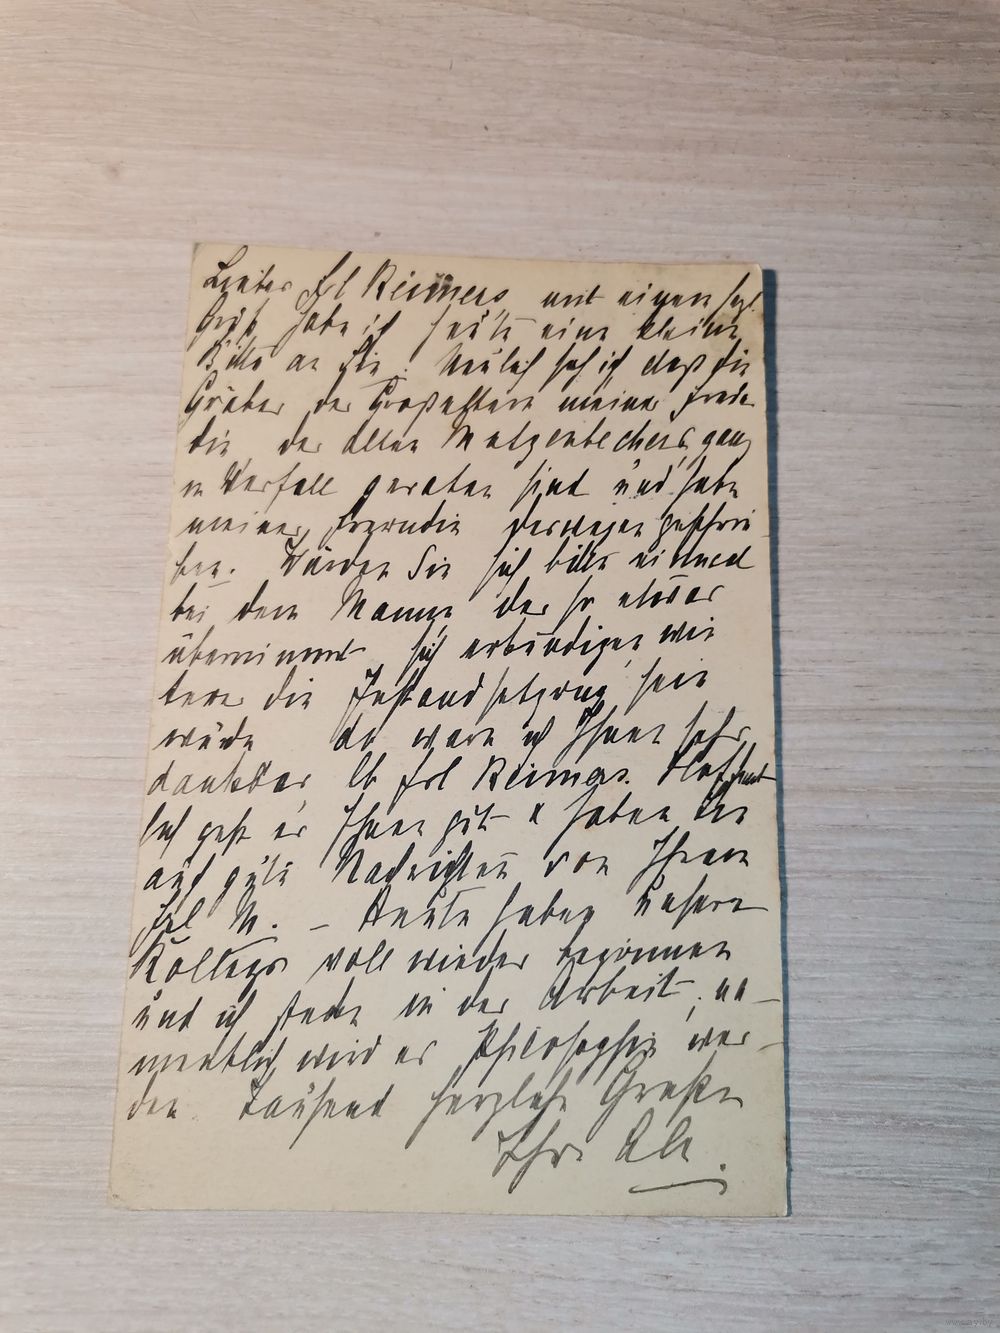 Liebes Frl Reimers mit einem hzl.
Gruß habe ich heute eine kleine
Bitte an Sie. Neulich sah ich daß die
Gräber der Großeltern meiner Freun
din der alten Matzenbechers ganz
in Verfall geraten sind und habe
meiner Freundin deswegen geschrie
ben. Würden Sie sich bitte einmal
bei dem Manne, der so etwas
übernimmt sich erkundigen wie
teuer die Instandsetzung sein
würde da wäre ich Ihnen sehr
dankbar lb Frl Reimers. Hoffent
lich geht es Ihnen gut u haben Sie
auch gute Nachrichten von Ihrem
Frl M. – Heute haben unsere
Kollegs voll wieder begonnen
und ich stecke in der Arbeit, na–
mentlich wird es Philosophie wer–
den. Tausend herzliche Grüße
Ihre